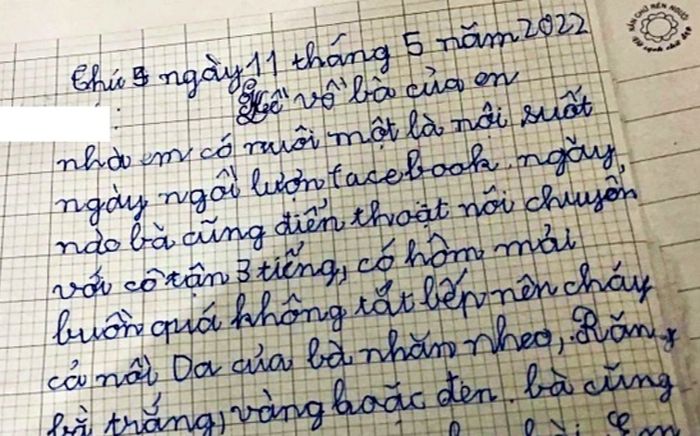 NẮN CHỮ RÈN NGƯỜI
Chú 5 ngày 11 tháng 5 năm 2022
Kể về bà của en
nhà em có nuôi một là nôi suốt
ngày ngồi lượn facebook. ngày
nào bà cũng điển thoạt nôi chuyển
với cô tận 3 tiếng, có hôm mải
buồn quá không tắt bếp nên cháy
cả nồi Da của bà nhăn nheo, Răng
bà trắng, vàng hoặc đen. bà cũng